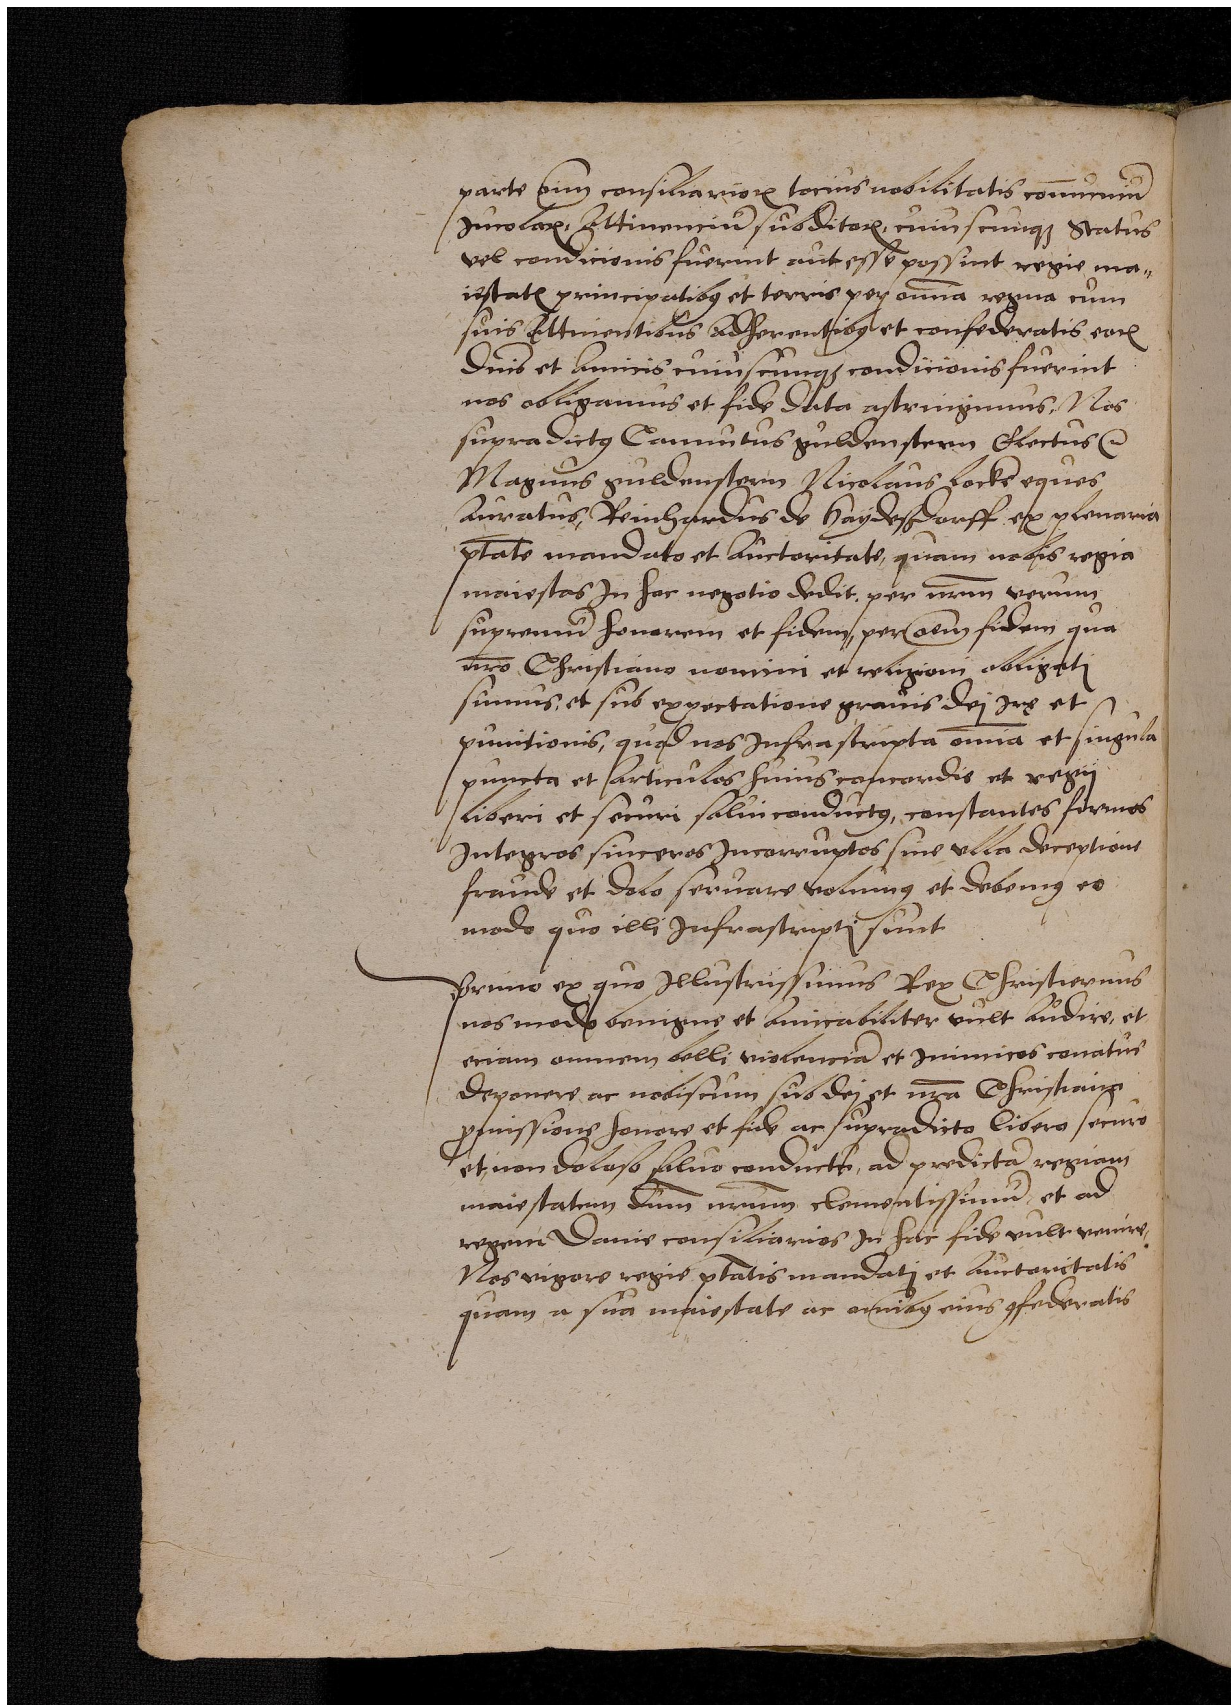 parte o̅im consiliarioꝝ tocius nobilitatis com̅uniu̅
Incolaꝝ, Attinenciu̅ subditoꝝ, cuiuscunqꝫ status
vel condicionis fuerint aut esse possint regie ma„
iestatꝭ principatibꝰ et terris per om̅ia regna cum
suis Attinentibus Adherentibꝰ et confederatis eoꝝ
dn̅is et Amicis cuiuscunqꝫ condicionis fuerint
nos obligamus et fide data astringimus, Nos
supradictꝰ Cannutus guldenstern Electus
Magnus guldenstern Nicolaus locke eques
Auratus, Reinhardus de Haydeßdorff ex plenaria
pt̅ate mandato et Auctoritate, quam nobis regia
maiestas In hac negotio dedit. per nr̅um verum
supremu̅ honorem et fidem, per oe̅m fidem qua
nr̅o Christiano nomini et religioni obligati
sumus, et sub expectatione grauis dej Irę et
punitionis, quod nos Infrascripta om̅ia et singula
puncta et Articulos huius concordie et regij
liberi et securi saluiconductꝰ, constantes firmos
Integros sinceros Incorruptos sine vlla deceptione
fraude et dolo seruare volumꝰ et debemꝰ eo
modo quo illi Infrascriptj sunt
Primo ex quo Illustrissimus Rex Christiernus
nos modo benigne et Amicabiliter vult Audire, et
eciam omnem belli violencia̅ et Inimicos conatus
deponere ac nobiscum sub dej et nr̅a Christiana
ꝓmissione honore et fide ac supradicto libero securo
et non doloso saluo conductu, ad predicta̅ regiam
maiestatem dn̅m nr̅um clementissimu̅ et ad
regni Danie consiliarios In hac fide vult venire,
Nos vigore regie pt̅atis mandatj et Auctoritatis
quam a sua maiestate ac omnibꝰ eius ꝯfederatis